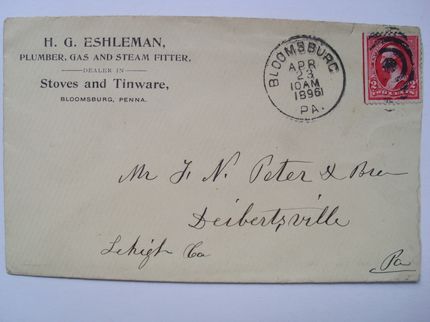 H. G. ESHLEMAN,
PLUMBER, GAS AND STEAM FITTER,
DEALER IN
Stoves and Tinware,
BLOOMSBURG, PENNA.
BLOOMSBURG
APR
23
10AM
1896
PA.
2 2
Mr F. N. Peter & Bro
Deibertsville
Lehigh Co
Pa